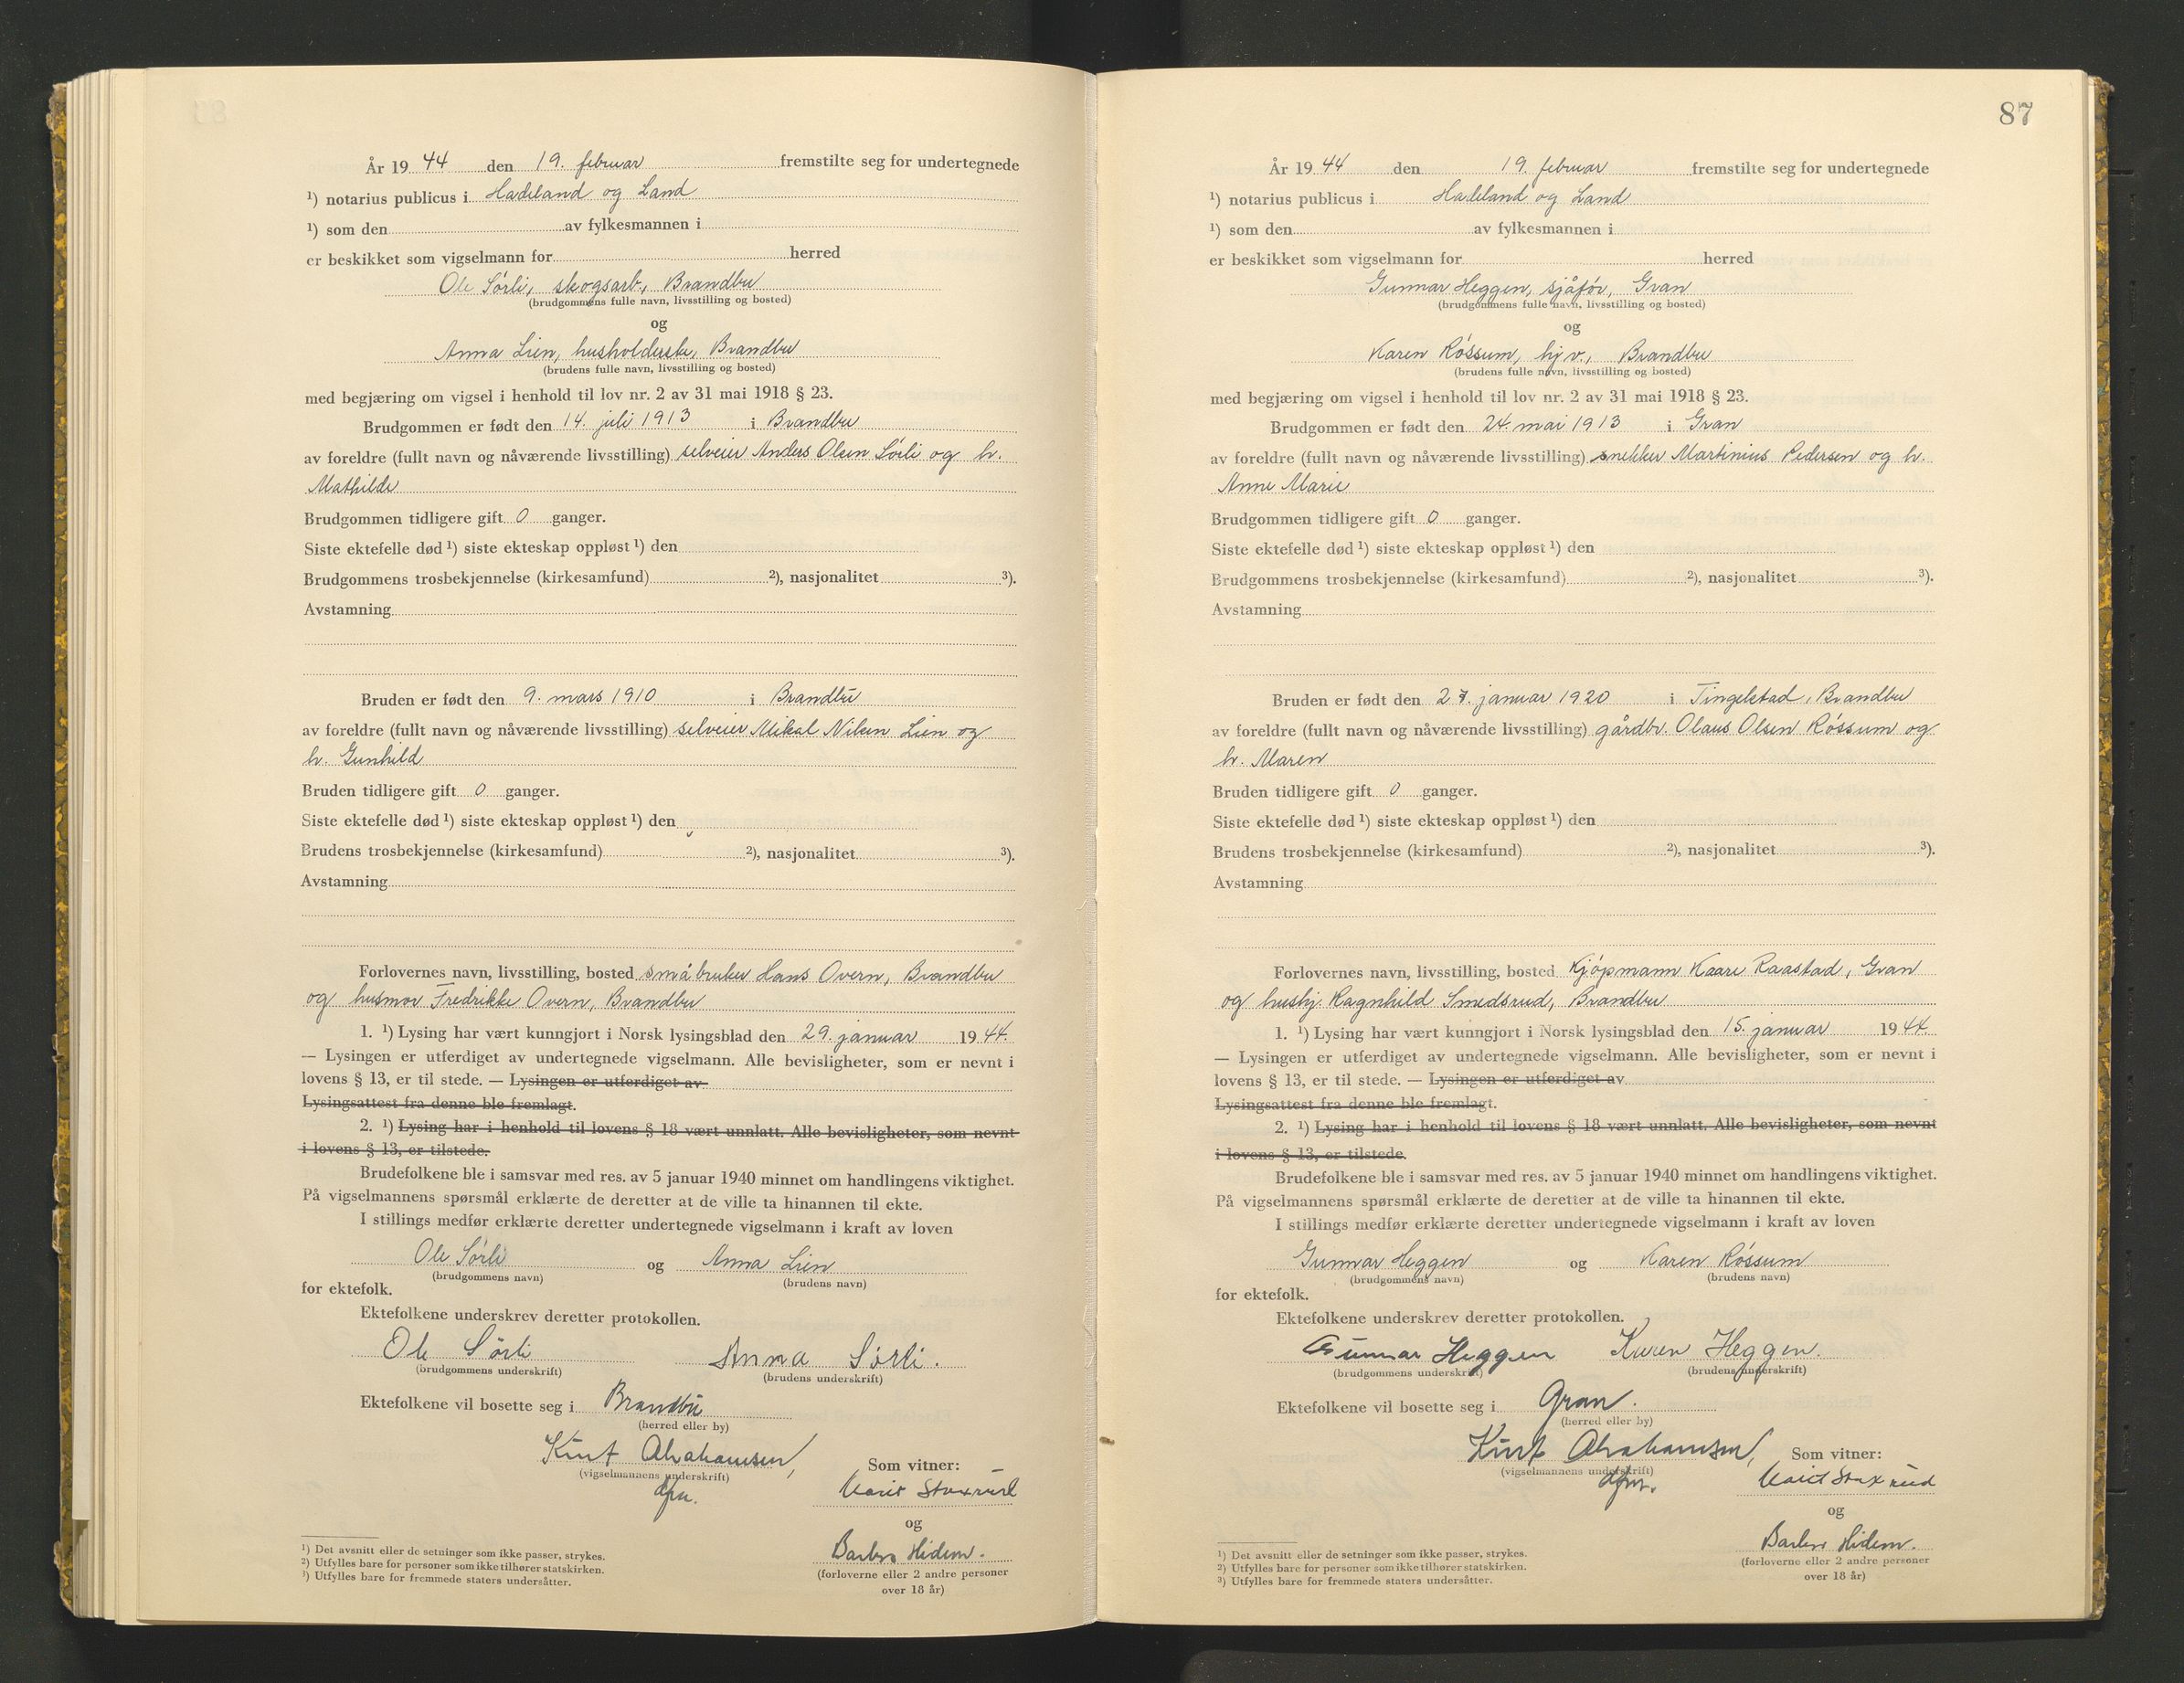 År 19 44 den 19. februar fremstilte seg for undertegnede
¹) notarius publicus i Hadeland og Land
¹) som den av fylkesmannen i
er beskikket som vigselmann for herred
Ole Sørli, skogsarb., Brandbu
(brudgommens fulle navn, livsstilling og bosted)
og
Anna Lien, husholderske, Brandbu
(brudens fulle navn, livsstilling og bosted)
med begjæring om vigsel i henhold til lov nr. 2 av 31 mai 1918 § 23.
Brudgommen er født den 14. juli 1913 i Brandbu
av foreldre (fullt navn og nåværende livsstilling) selveier Anders Olsen Sørli og h.
Mathilde
Brudgommen tidligere gift 0 ganger.
Siste ektefelle død ¹) siste ekteskap oppløst ¹) den
Brudgommens trosbekjennelse (kirkesamfund) ²), nasjonalitet ³).
Avstamning
Bruden er født den 9. mars 1910 i Brandbu
av foreldre (fullt navn og nåværende livsstilling) selveier Mikal Nilsen Lien og
h. Gunhild
Bruden tidligere gift 0 ganger.
Siste ektefelle død ¹) siste ekteskap oppløst ¹) den
Brudens trosbekjennelse (kirkesamfund) ²), nasjonalitet ³).
Avstamning
Forlovernes navn, livsstilling, bosted småbruker Hans Overn, Brandbu
og husmor Fredrikke Overn, Brandbu
1. ¹) Lysing har vært kunngjort i Norsk lysingsblad den 29. januar 19 44.
— Lysingen er utferdiget av undertegnede vigselmann. Alle bevisligheter, som er nevnt i
lovens § 13, er til stede. — Lysingen er utferdiget av
Lysingsattest fra denne ble fremlagt.
2. ¹) Lysing har i henhold til lovens § 18 vært unnlatt. Alle bevisligheter, som nevnt
i lovens § 13, er tilstede.
Brudefolkene ble i samsvar med res. av 5 januar 1940 minnet om handlingens viktighet.
På vigselmannens spørsmål erklærte de deretter at de ville ta hinannen til ekte.
I stillings medfør erklærte deretter undertegnede vigselmann i kraft av loven
Ole Sørli og Anna Lien
(brudgommens navn) (brudens navn)
for ektefolk.
Ektefolkene underskrev deretter protokollen.
Ole Sørli Anna Sørli.
(brudgommens underskrift) (brudens underskrift)
Ektefolkene vil bosette seg i Brandbu
(herred eller by)
Kurt Abrahamsen,
(vigselmannens underskrift) Som vitner:
dfm. Marit Staxrud
og
Barbro Hidem.
(forloverne eller 2 andre personer
over 18 år)
¹) Det avsnitt eller de setninger som ikke passer, strykes.
²) Utfylles bare for personer som ikke tilhører statskirken.
³) Utfylles bare for fremmede staters undersåtter.
87
År 19 44 den 19. februar fremstilte seg for undertegnede
¹) notarius publicus i Hadeland og Land
¹) som den av fylkesmannen i
er beskikket som vigselmann for herred
Gunnar Heggen, sjåfør, Gran
(brudgommens fulle navn, livsstilling og bosted)
og
Karen Røssum, hjv., Brandbu
(brudens fulle navn, livsstilling og bosted)
med begjæring om vigsel i henhold til lov nr. 2 av 31 mai 1918 § 23.
Brudgommen er født den 24. mai 1913 i Gran
av foreldre (fullt navn og nåværende livsstilling) snekker Martinius Pedersen og h.
Anne Marie
Brudgommen tidligere gift 0 ganger.
Siste ektefelle død ¹) siste ekteskap oppløst ¹) den
Brudgommens trosbekjennelse (kirkesamfund) ²), nasjonalitet ³).
Avstamning
Bruden er født den 27. januar 1920 i Tingelstad, Brandbu
av foreldre (fullt navn og nåværende livsstilling) gårdbr. Olaus Olsen Røssum og
h. Maren
Bruden tidligere gift 0 ganger.
Siste ektefelle død ¹) siste ekteskap oppløst ¹) den
Brudens trosbekjennelse (kirkesamfund) ²), nasjonalitet ³).
Avstamning
Forlovernes navn, livsstilling, bosted Kjøpmann Kaare Raastad, Gran
og hushj. Ragnhild Smedsrud, Brandbu
1. ¹) Lysing har vært kunngjort i Norsk lysingsblad den 15. januar 19 44
— Lysingen er utferdiget av undertegnede vigselmann. Alle bevisligheter, som er nevnt i
lovens § 13, er til stede. — Lysingen er utferdiget av
Lysingsattest fra denne ble fremlagt.
2. ¹) Lysing har i henhold til lovens § 18 vært unnlatt. Alle bevisligheter, som nevnt
i lovens § 13, er tilstede.
Brudefolkene ble i samsvar med res. av 5 januar 1940 minnet om handlingens viktighet.
På vigselmannens spørsmål erklærte de deretter at de ville ta hinannen til ekte.
I stillings medfør erklærte deretter undertegnede vigselmann i kraft av loven
Gunnar Heggen og Karen Røssum
(brudgommens navn) (brudens navn)
for ektefolk.
Ektefolkene underskrev deretter protokollen.
Gunnar Heggen Karen Heggen.
(brudgommens underskrift) (brudens underskrift)
Ektefolkene vil bosette seg i Gran.
(herred eller by)
Kurt Abrahamsen,
(vigselmannens underskrift) Som vitner:
dfm. Marit Staxrud
og
Barbro Hidem.
(forloverne eller 2 andre personer
over 18 år)
¹) Det avsnitt eller de setninger som ikke passer, strykes.
²) Utfylles bare for personer som ikke tilhører statskirken.
³) Utfylles bare for fremmede staters undersåtter.